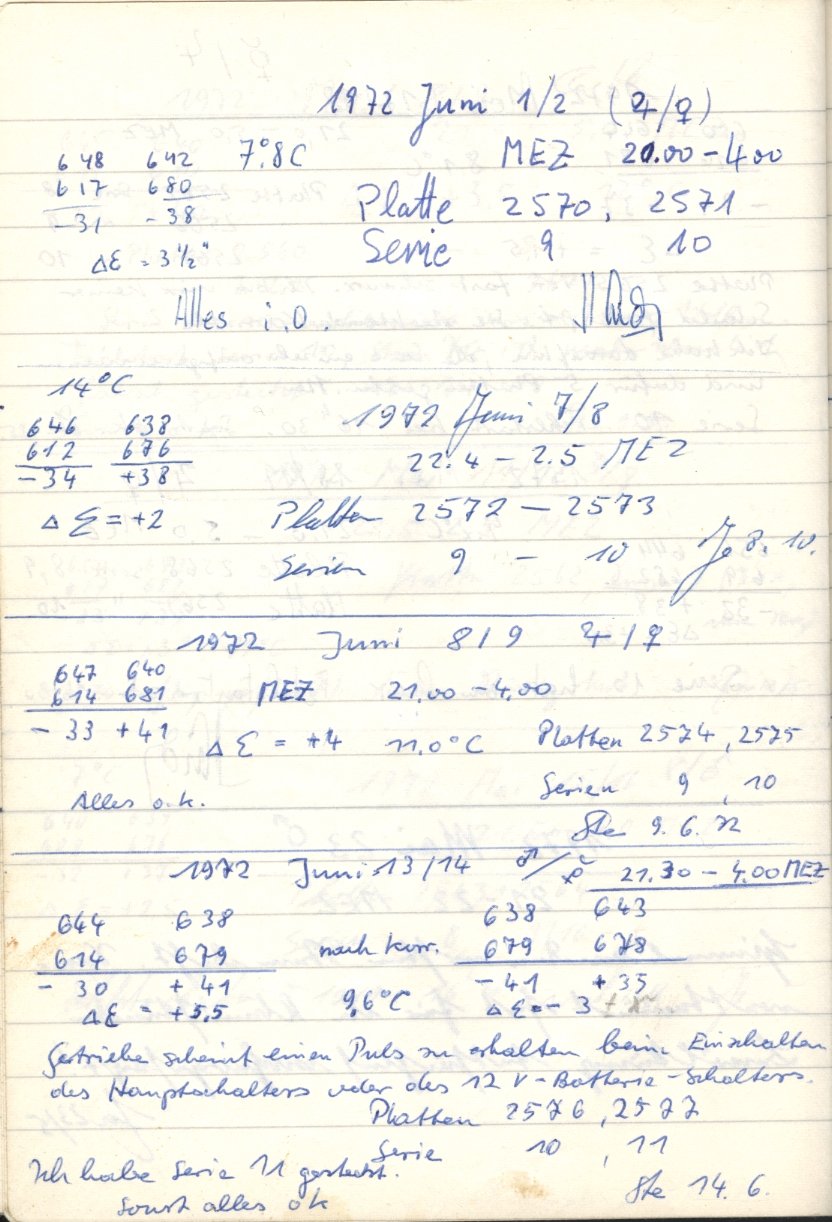 1972 Juni 1/2 (♃/♀)
648 642 7.°8C MEZ 21.00-4.00
617 680
-31 -38
Platte 2570, 2571
Serie 9 10
Δε = 3½"
Alles i.O.
14°C
646 638 1972 Juni 7/8
612 676 22.4 – 2.5 MEZ
-34 +38
Δε = +2 Platten 2572 – 2573
Serien 9 – 10
1972 Juni 8/9 ♃/♀
647 640
614 681 MEZ 21.00 – 4.00
-33 +41
Δε = +4 11.0°C Platten 2574, 2575
Serien 9, 10
Alles o.k.
Ste 9.6.72
1972 Juni 13/14 ♂/☿ 21.30 – 4.00 MEZ
644 638 638 643
614 679 nach korr. 679 678
-30 +41 -41 +35
Δε = +5.5 9.6°C Δε = -3
Getriebe scheint einen Puls zu erhalten beim Einschalten
des Hauptschalters oder des 12 V-Batterie-Schalters.
Platten 2576, 2577
Serie 10, 11
Ich habe Serie 11 gesteckt.
Sonst alles ok
Ste 14.6.